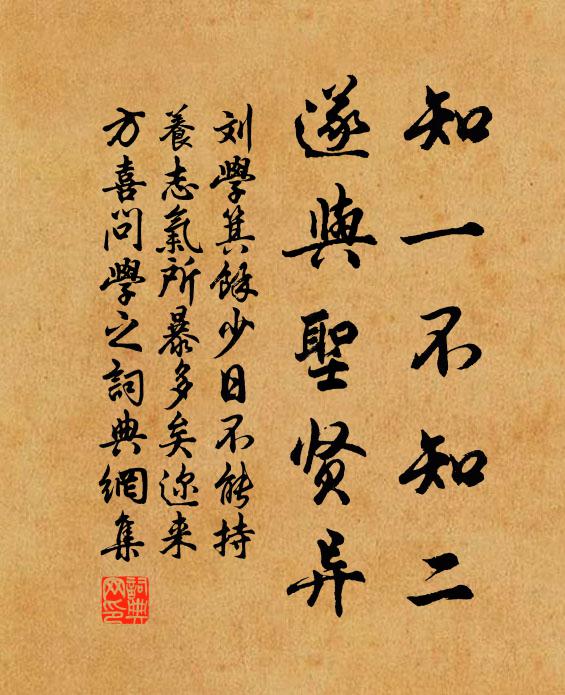 知一不知二
遂與聖贤异
刘學箕餘少日不能持
養志氣所暴多矣迩来
方喜問學之詞典網集
詞典
网印